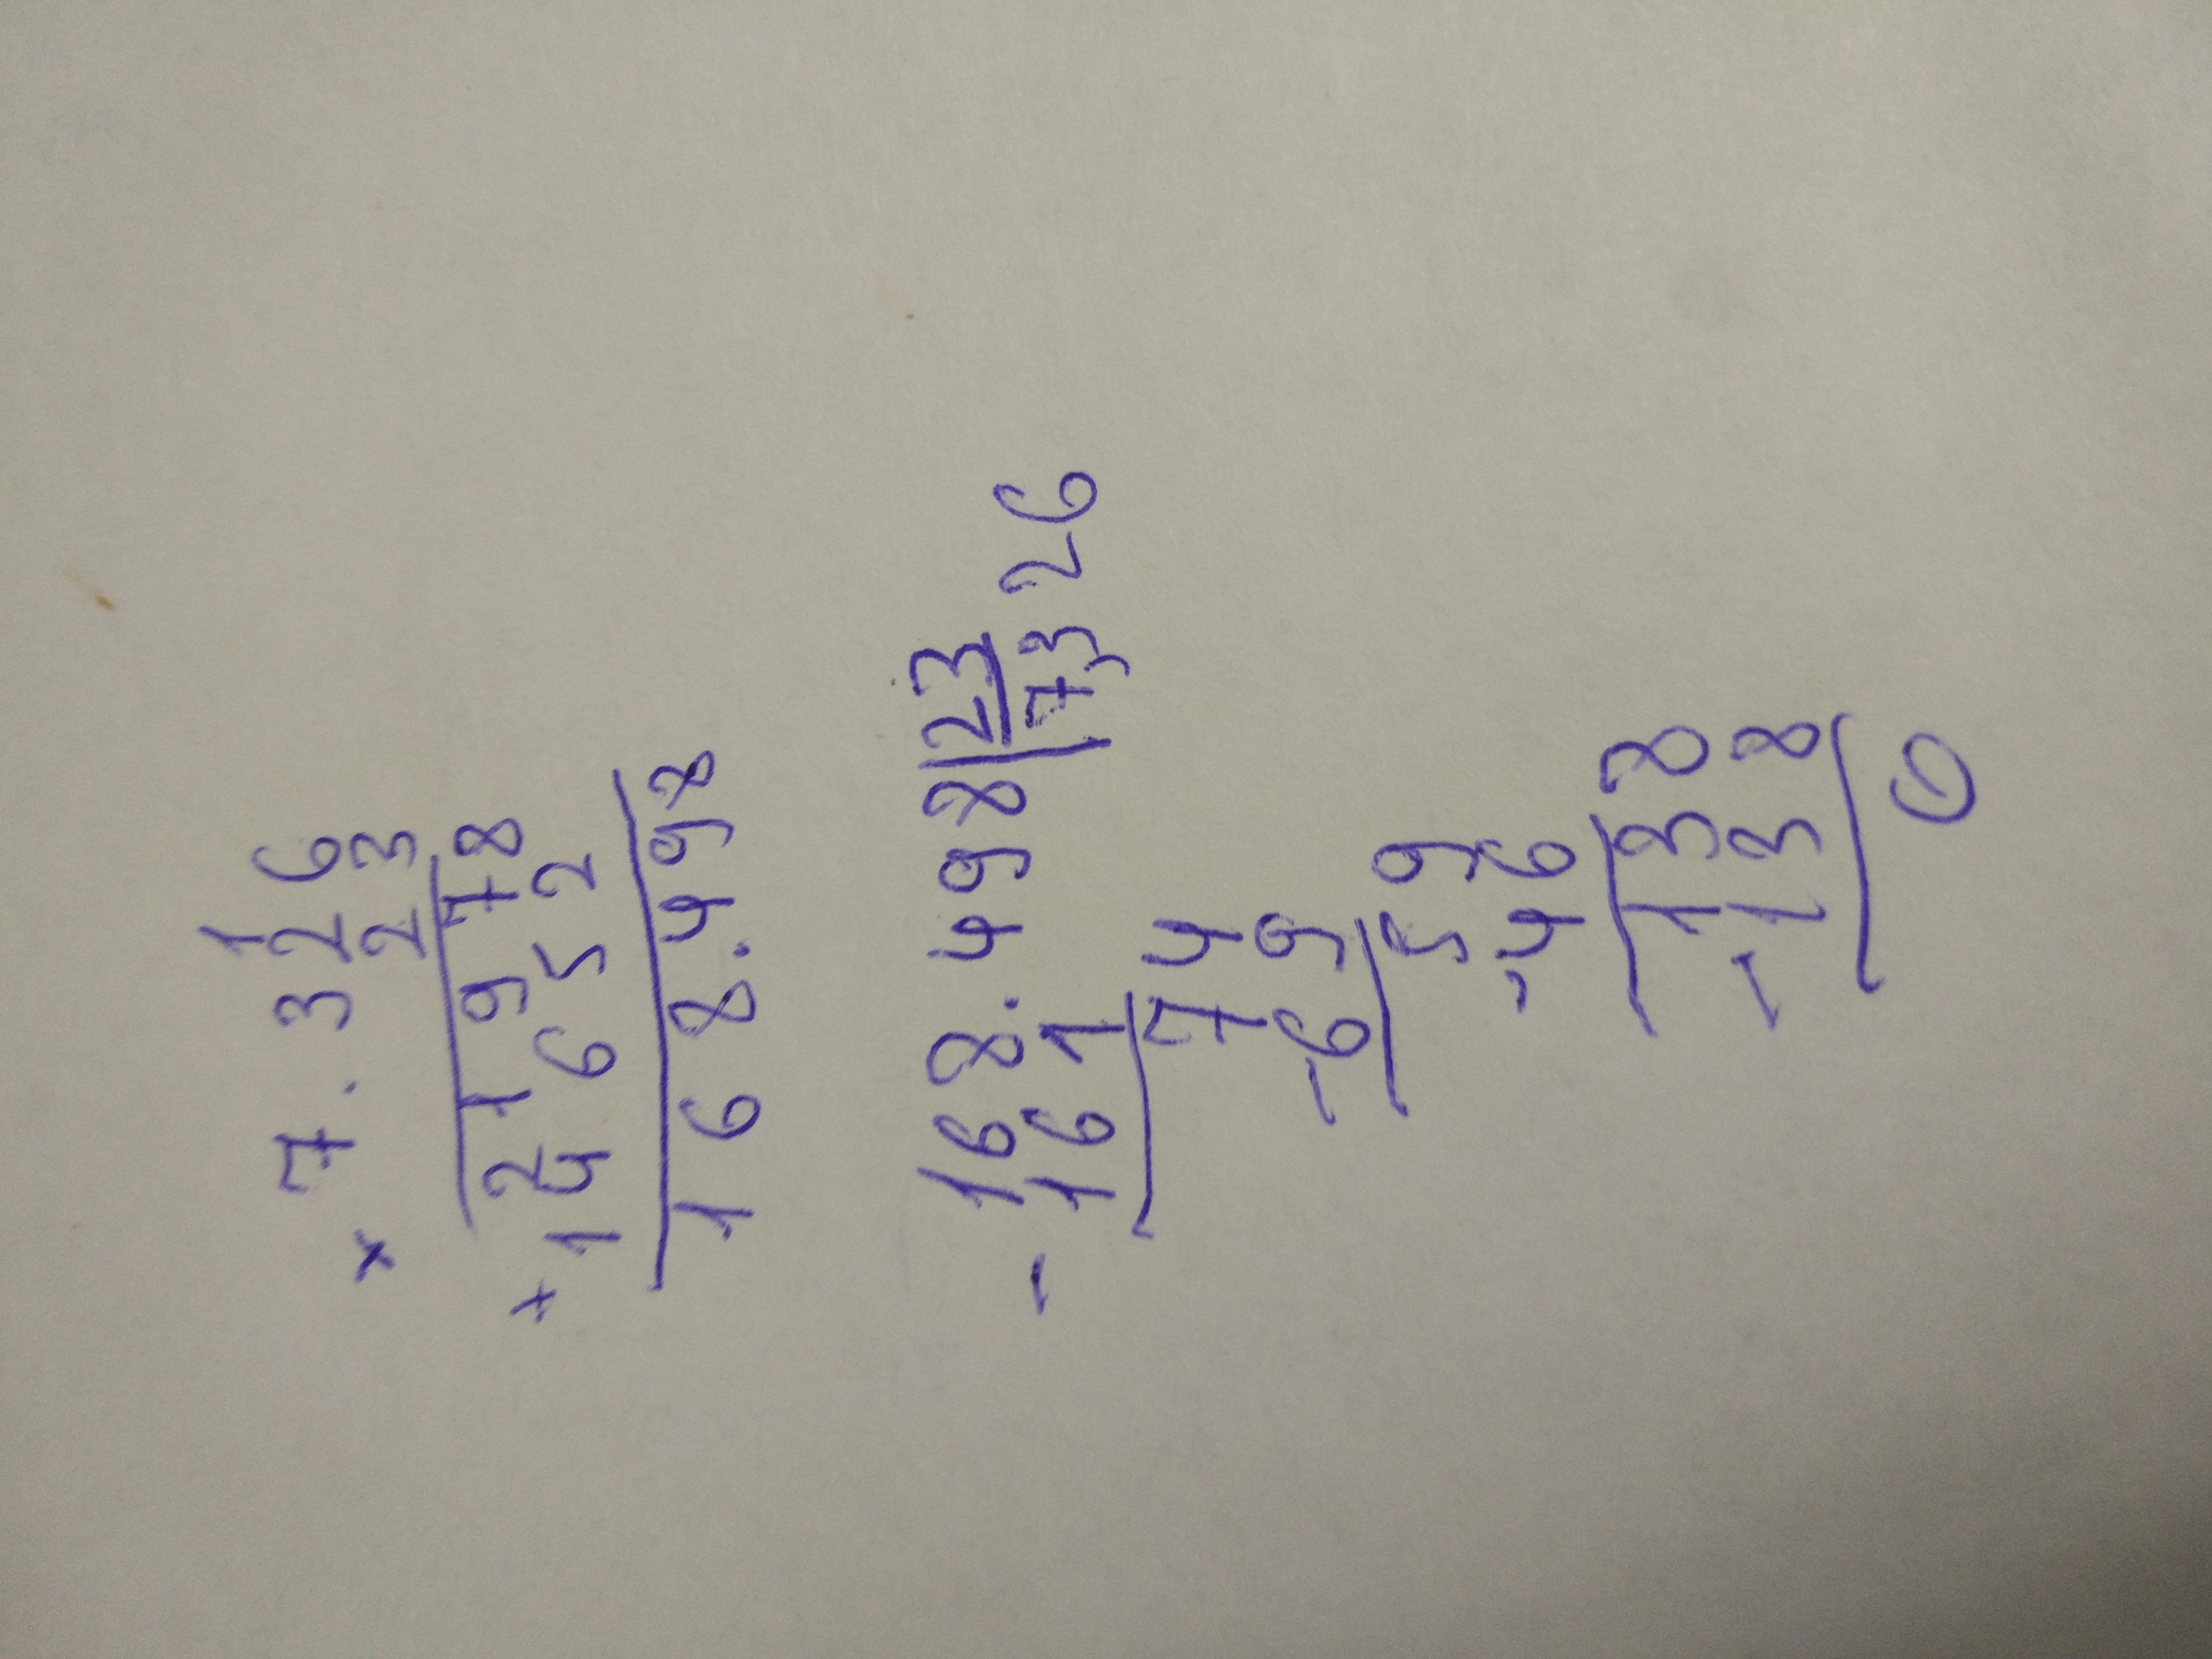 7.326
× 23
21978
+14652
168.498
168.498|23
-161 7,326
74
-69
59
-46
138
-138
0